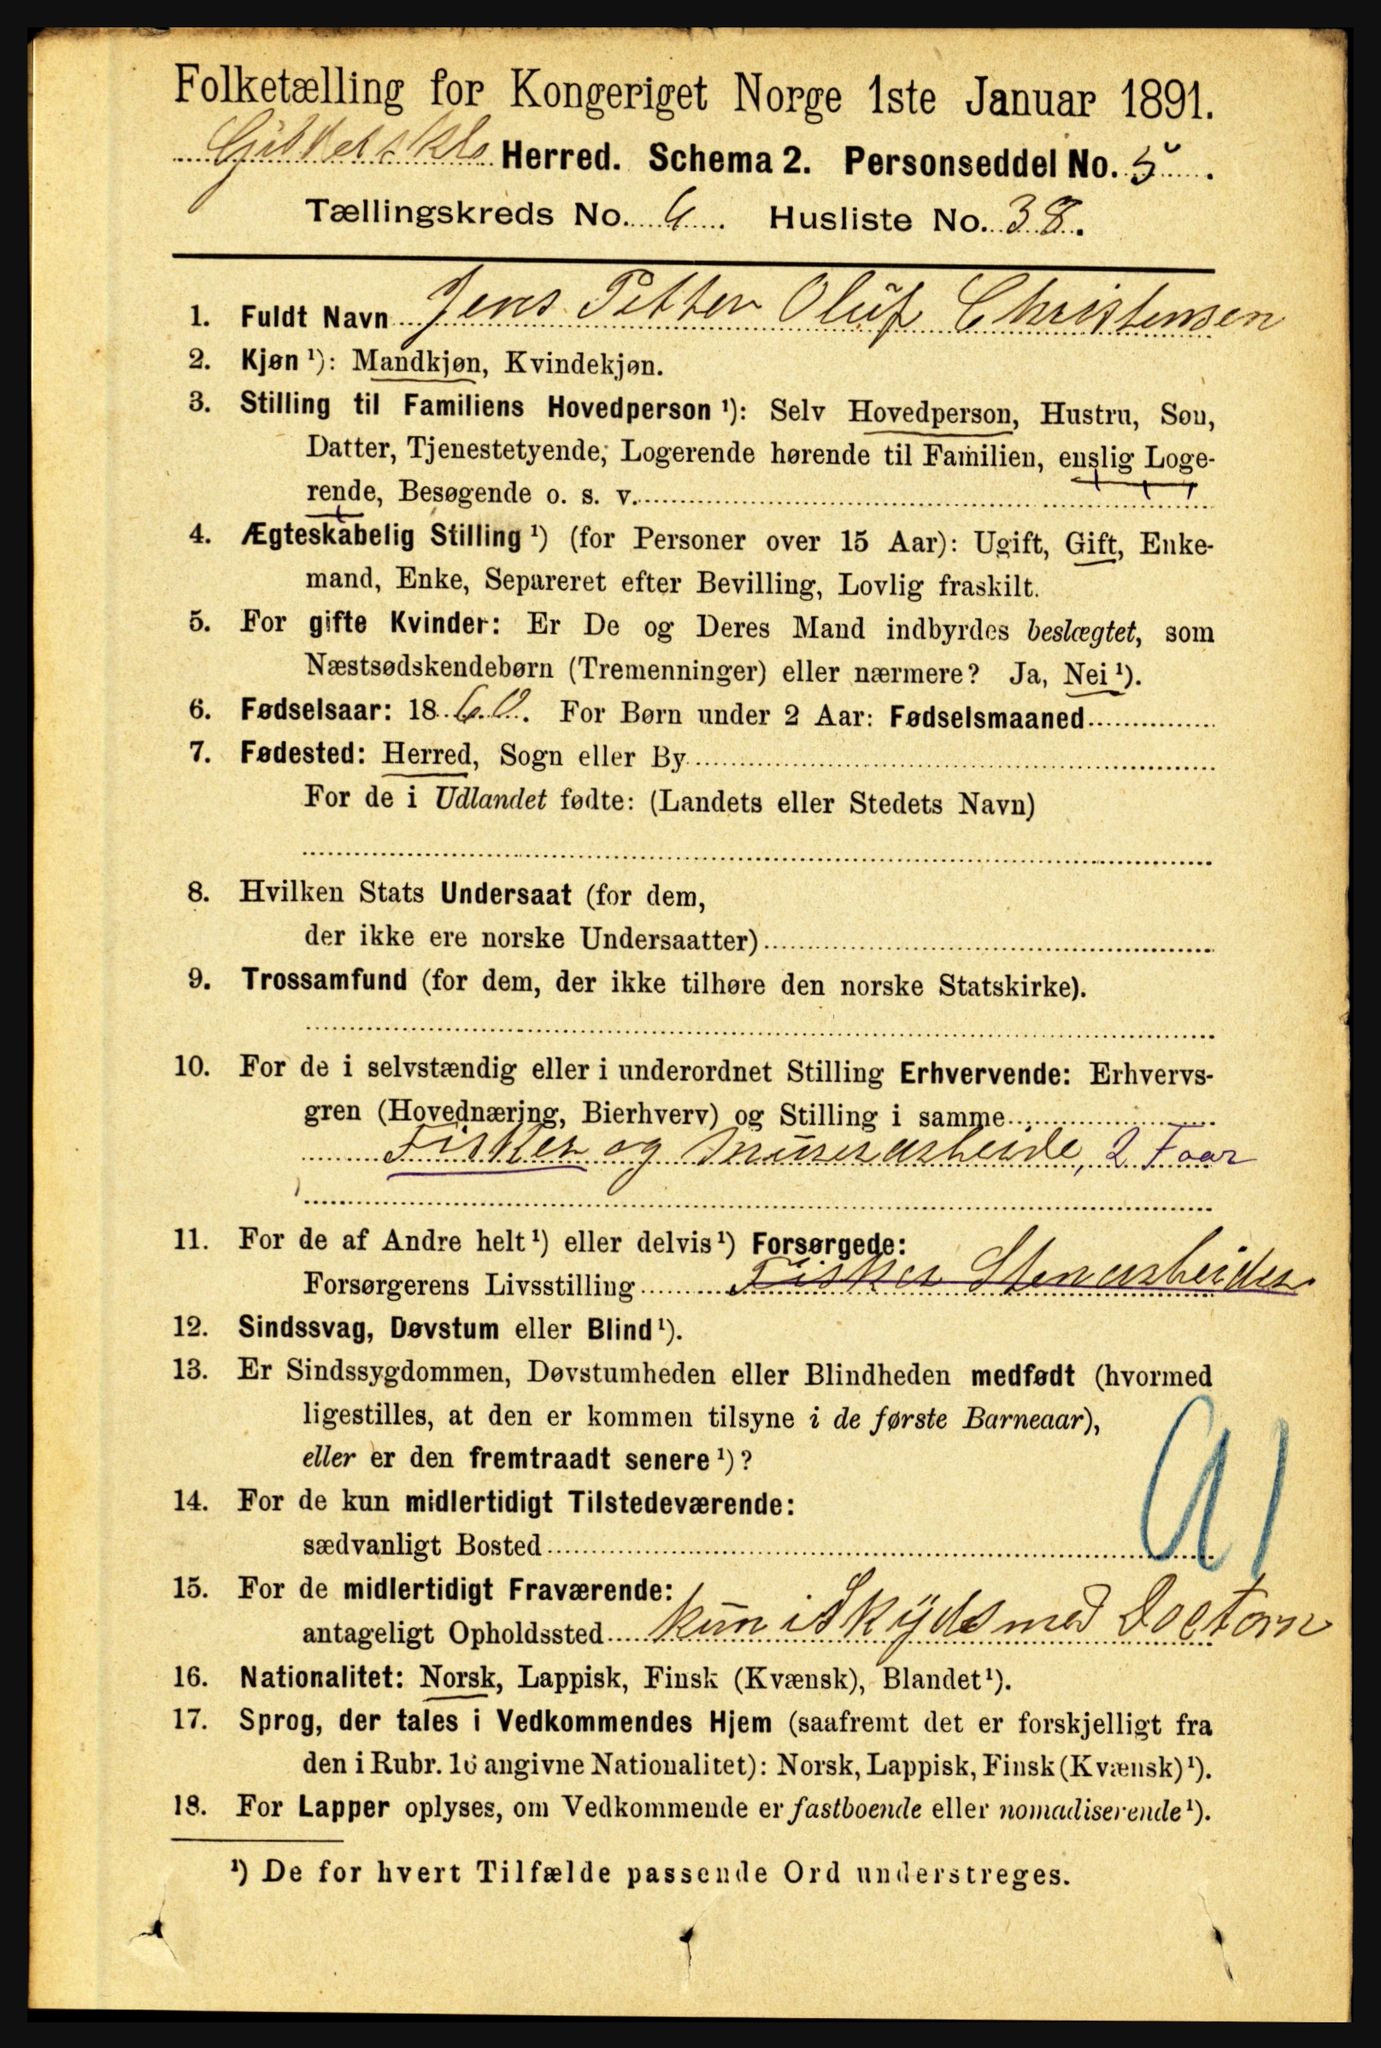 Folketælling for Kongeriget Norge 1ste Januar 1891.
Herred. Schema 2. Personseddel No. 5.
Tællingskreds No. 6. Husliste No. 38.
1. Fuldt Navn Jens Petter Oluf Christensen
2. Kjøn ¹): Mandkjøn, Kvindekjøn.
3. Stilling til Familiens Hovedperson ¹): Selv Hovedperson, Hustru, Søn,
Datter, Tjenestetyende, Logerende hørende til Familien, enslig Loge-
rende, Besøgende o. s. v.
4. Ægteskabelig Stilling ¹) (for Personer over 15 Aar): Ugift, Gift, Enke-
mand, Enke, Separeret efter Bevilling, Lovlig fraskilt.
5. For gifte Kvinder: Er De og Deres Mand indbyrdes beslægtet, som
Næstsødskendebørn (Tremenninger) eller nærmere? Ja, Nei ¹).
6. Fødselsaar: 1860. For Børn under 2 Aar: Fødselsmaaned
7. Fødested: Herred, Sogn eller By
For de i Udlandet fødte: (Landets eller Stedets Navn)
8. Hvilken Stats Undersaat (for dem,
der ikke ere norske Undersaatter)
9. Trossamfund (for dem, der ikke tilhøre den norske Statskirke).
10. For de i selvstændig eller i underordnet Stilling Erhvervende: Erhvervs-
gren (Hovednæring, Bierhverv) og Stilling i samme
Fisker og Murerarbeide, 2 F aar
11. For de af Andre helt ¹) eller delvis ¹) Forsørgede:
Forsørgerens Livsstilling Fisker Stenarbeider
12. Sindssvag, Døvstum eller Blind ¹).
13. Er Sindssygdommen, Døvstumheden eller Blindheden medfødt (hvormed
ligestilles, at den er kommen tilsyne i de første Barneaar),
eller er den fremtraadt senere ¹)?
14. For de kun midlertidigt Tilstedeværende:
sædvanligt Bosted
15. For de midlertidigt Fraværende:
antageligt Opholdssted kun i Skyds med Doctorn
16. Nationalitet: Norsk, Lappisk, Finsk (Kvænsk), Blandet ¹).
17. Sprog, der tales i Vedkommendes Hjem (saafremt det er forskjelligt fra
den i Rubr. 16 angivne Nationalitet): Norsk, Lappisk, Finsk (Kvænsk) ¹).
18. For Lapper oplyses, om Vedkommende er fastboende eller nomadiserende ¹).
¹) De for hvert Tilfælde passende Ord understreges.